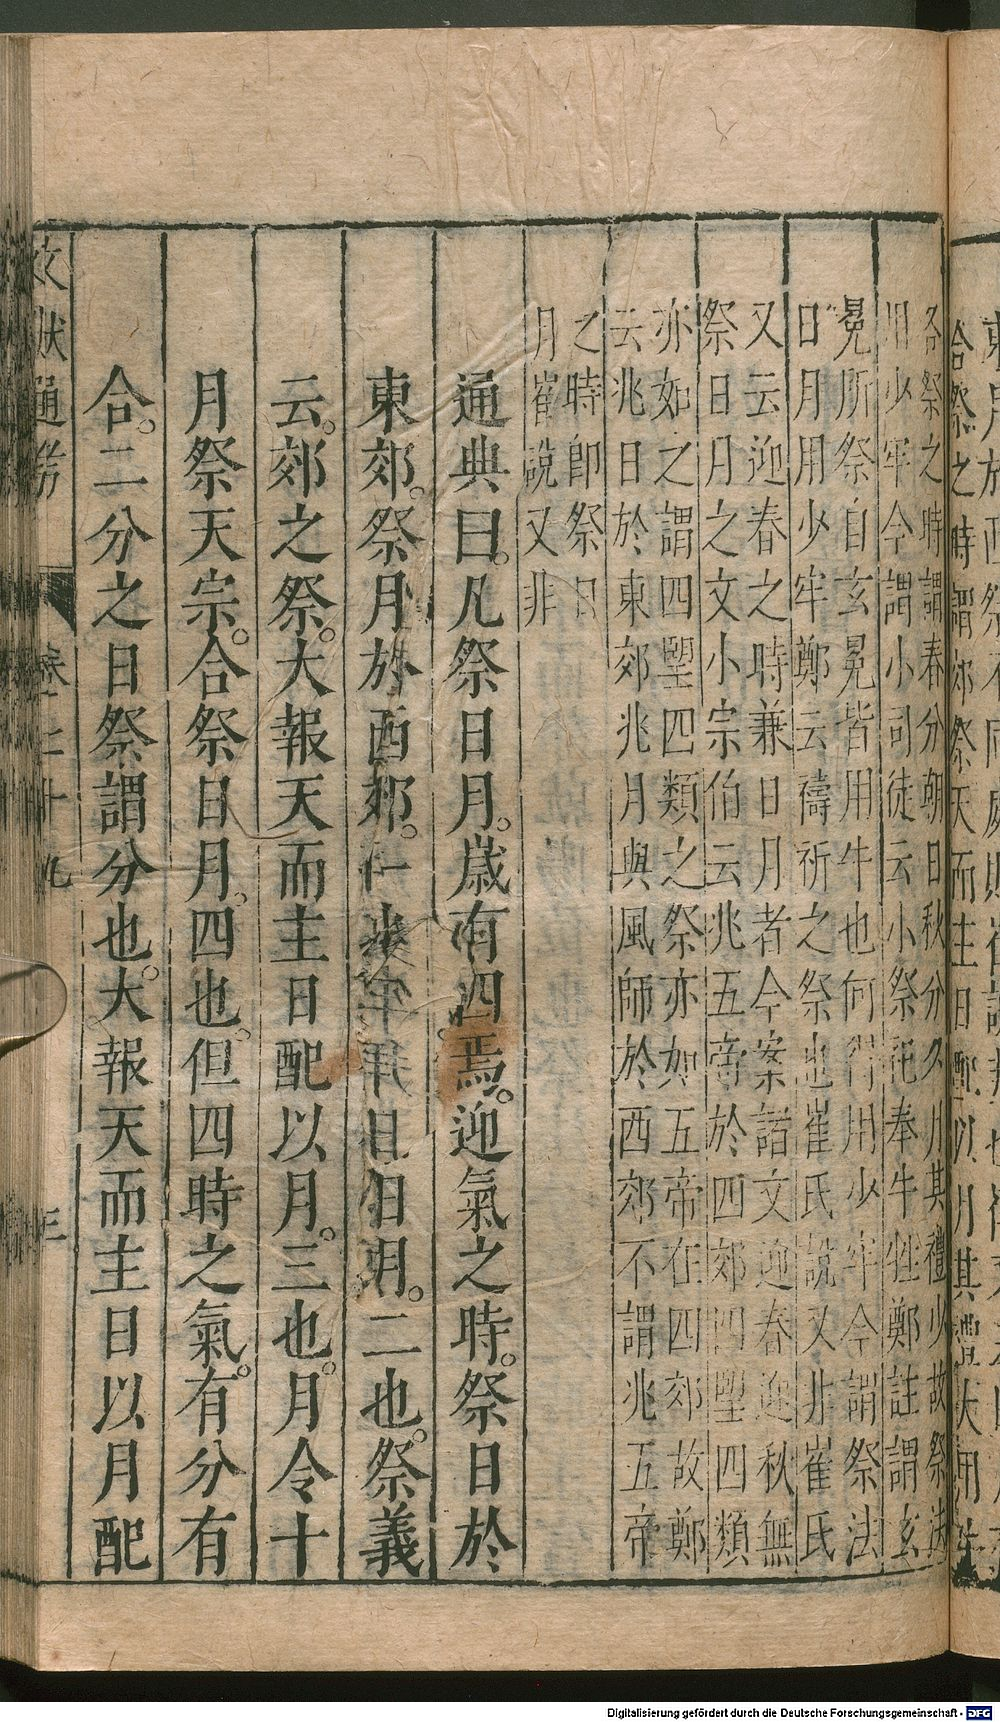 各祭之時謂春分朝日秋分夕月其禮少故祭法
用少牢今謂小司徒云小祭祀奉牛牲鄭註謂玄
冕所祭自玄冕皆用牛也何得用少牢今謂祭法
日月用少牢鄭云禱祈之祭也崔氏說又非崔氏
又云迎春之時兼日月者今案諸文迎春迎秋無
祭日月之文小宗伯云兆五帝於四郊四朢四類
亦如之謂四朢四類之祭亦如五帝在四郊故鄭
云兆日於東郊兆月與風師於西郊不謂兆五帝
之時即祭日
月崔說又非
通典曰。凡祭日月。歲有四焉。迎氣之時。祭日於
東郊。祭月於西郊。一也。二也。祭義
云。郊之祭。大報天而主日配以月。三也。月令十
月祭天宗。合祭日月。四也。但四時之氣。有分有
合。二分之日祭謂分也。大報天而主日以月配
文獻通考 卷七十九 三